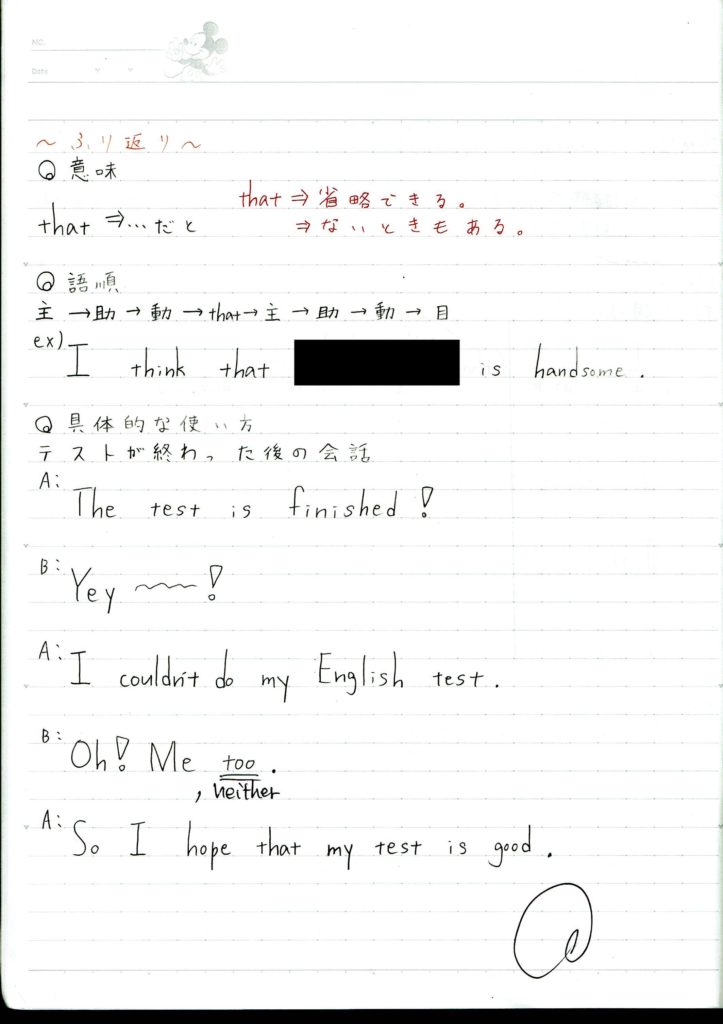 No.
Date
～ふり返り～
Q 意味
that ⇒ 省略できる。
that ⇒…だと
⇒ないときもある。
Q 語順
主→助→動→that→主→助→動→目
ex) I think that is handsome.
Q 具体的な使い方
テストが終わった後の会話
A: The test is finished!
B: Yey ～～!
A: I couldn't do my English test.
B: Oh! Me too.
, neither
A: So I hope that my test is good.